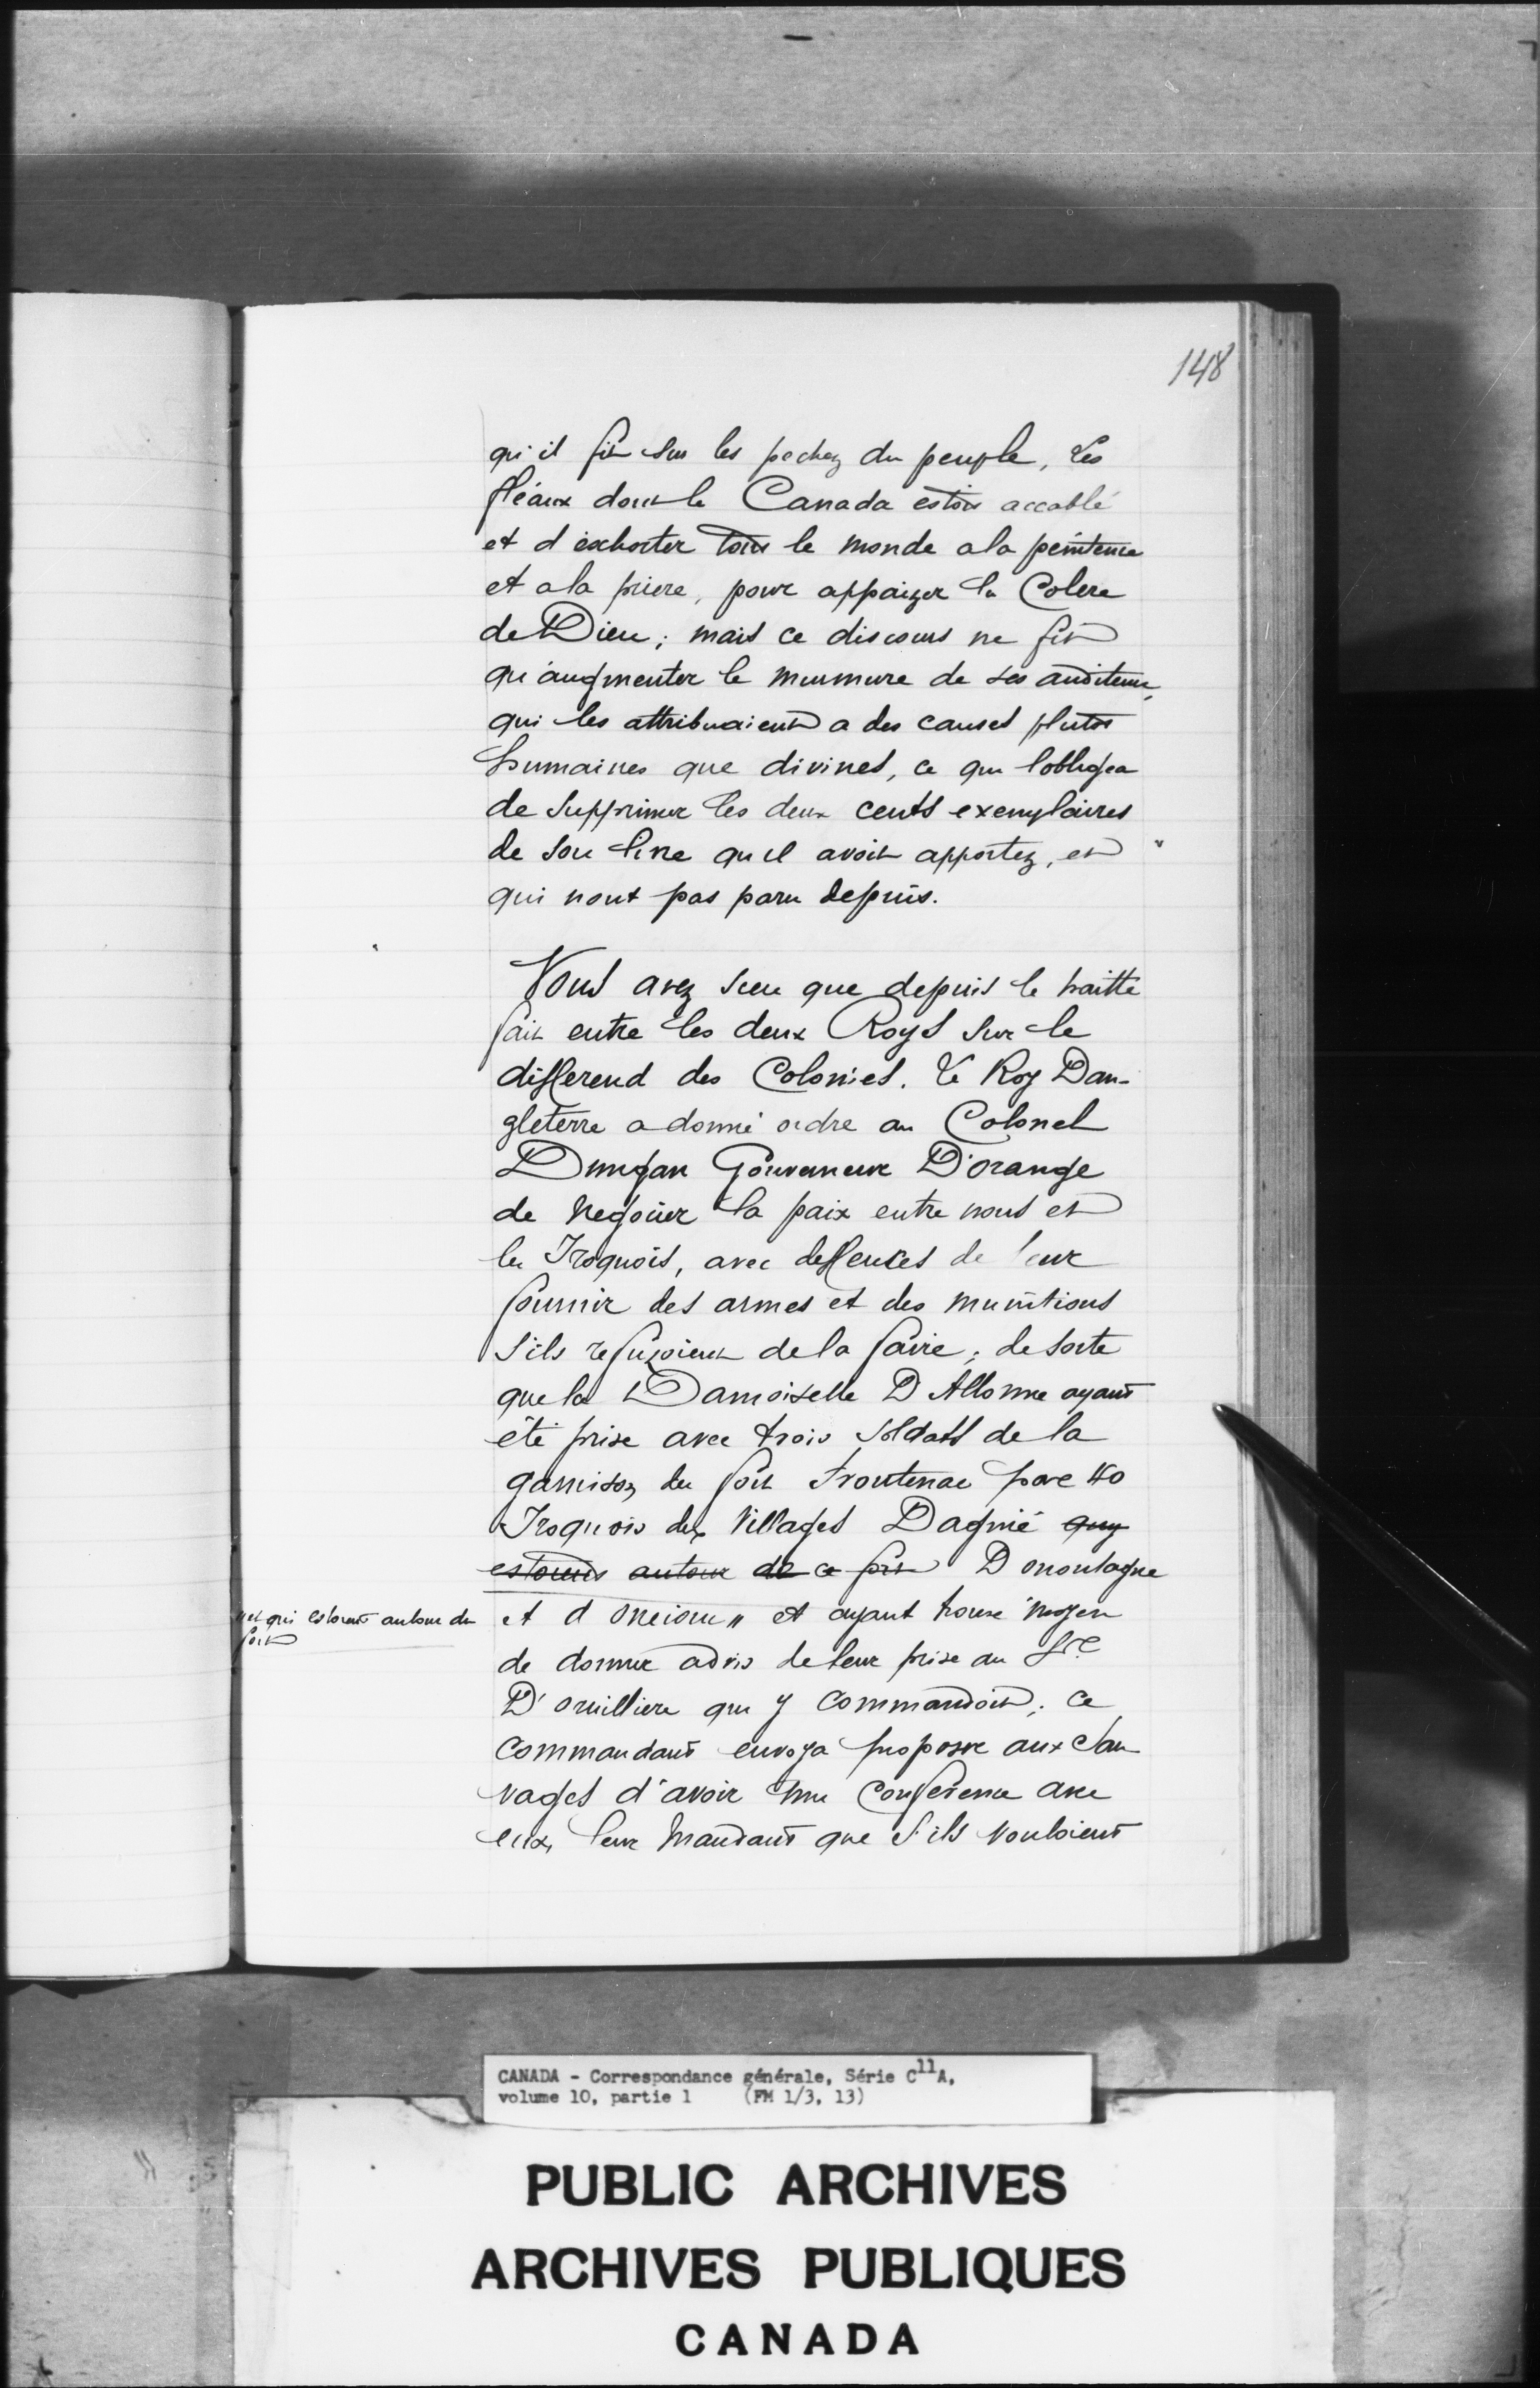 148
qu'il fit sur les pechez du peuple, Les
fléaux dont le Canada estoit accablé
et d'exhorter tout le monde a la penitence
et a la priere, pour appaizer la Colere
de Dieu; mais ce discours ne fit
qu'augmenter le murmure de ses auditeurs,
qui les attribuaient a des causes plutot
humaines que divines, ce qui l'obligea
de Supprimer les deux cents exemplaires
de son livre qu il avoit apportez, et
qui nont pas paru depuis.
Vous avez sceu que depuis le traitté
fait entre les deux Roys sur le
differend des Colonies. Le Roy Dan-
gleterre a donné ordre au Colonel
Dungan Gouverneur D'orange
de Negocier la paix entre nous et
les Iroquois, avec deffences de leur
fournir des armes et des munitions
S'ils refuzoient de la faire; de sorte
que la Damoiselle D'Allonne ayant
été prise avec trois Soldats de la
garnison du fort frontenac par 40
Iroquois des Villages Dagnié quy
estoients autour de ce fort D onontague
et d oneiou " et ayant trouve moyen
" et qui estoient autour du
fort
de donner advis de leur prise au Sr.
D'orvilliere qui y commandoit; ce
commandant envoya proposer aux Sau
vages d'avoir une Conference avec
eux, leur Mandant que S'ils vouloient
CANADA - Correspondance générale, Série C11A,
volume 10, partie 1 (FM 1/3, 13)
PUBLIC ARCHIVES
ARCHIVES PUBLIQUES
CANADA